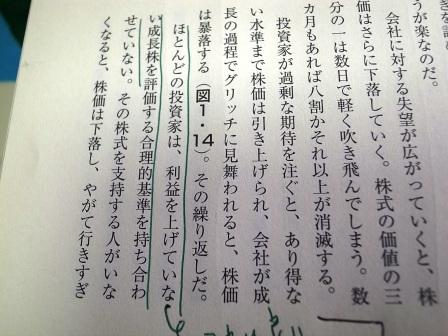 うが楽なのだ。
会社に対する失望が広がっていくと、株
価はさらに下落していく。株式の価値の三
分の一は数日で軽く吹き飛んでしまう。数
カ月もあれば八割かそれ以上が消滅する。
投資家が過剰な期待を注ぐと、あり得な
い水準まで株価は引き上げられ、会社が成
長の過程でグリッチに見舞われると、株価
は暴落する（図1・14）。その繰り返しだ。
ほとんどの投資家は、利益を上げていな
い成長株を評価する合理的基準を持ち合わ
せていない。その株式を支持する人がいな
くなると、株価は下落し、やがて行きすぎ